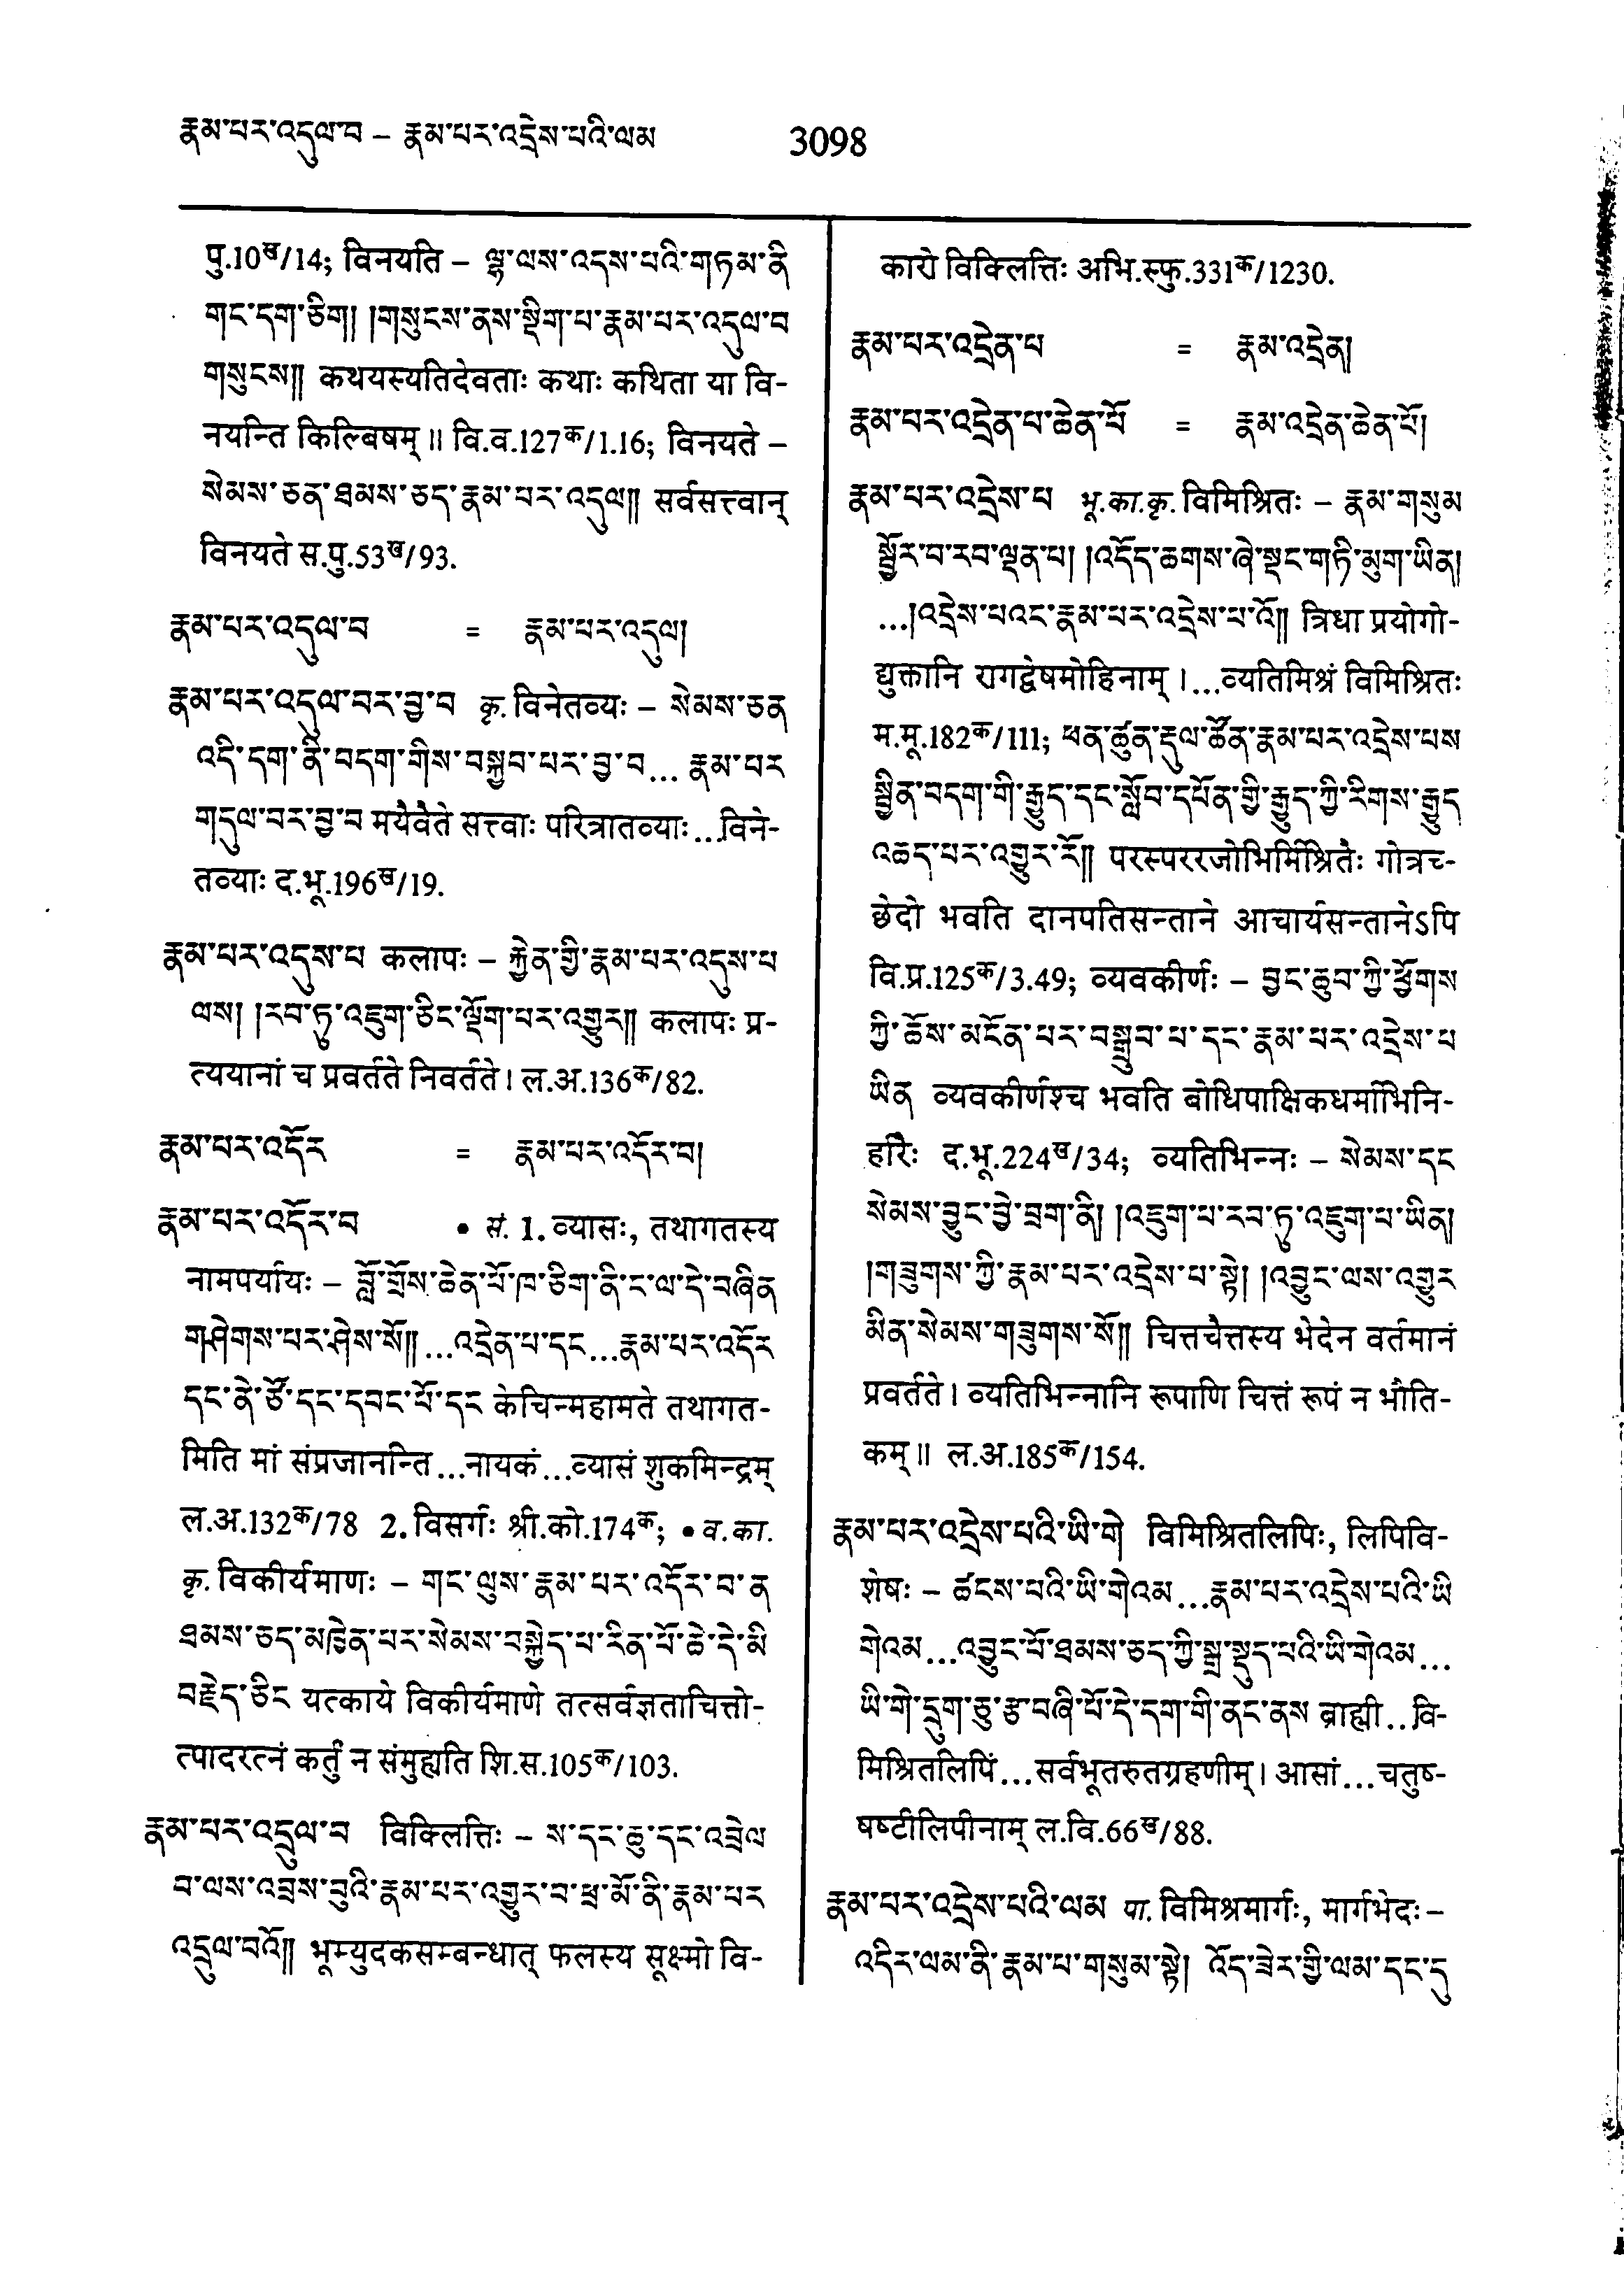 རྣམ་པར་འདུལ་བ – རྣམ་པར་འདྲེས་པའི་ལམ 3098
पु.10ख/14; विनयति – ལྷ་ལས་འདས་པའི་གཏམ་ནི
གང་དག་ཅིག། །གསུངས་ནས་སྡིག་པ་རྣམ་པར་འདུལ་བ
གསུངས།། कथयस्यतिदेवताः कथाः कथिता या वि-
नयन्ति किल्बिषम्॥ वि.व.127क/1.16; विनयते –
སེམས་ཅན་ཐམས་ཅད་རྣམ་པར་འདུལ།། सर्वसत्त्वान्
विनयते स.पु.53ख/93.
རྣམ་པར་འདུལ་བ = རྣམ་པར་འདུལ།
རྣམ་པར་འདུལ་བར་བྱ་བ कृ. विनेतव्यः – སེམས་ཅན
འདི་དག་ནི་བདག་གིས་བསྐྱབ་པར་བྱ་བ... རྣམ་པར
གདུལ་བར་བྱ་བ मयैवैते सत्त्वाः परित्रातव्याः...विने-
तव्याः द.भू.196ख/19.
རྣམ་པར་འདུས་པ कलापः – རྐྱེན་གྱི་རྣམ་པར་འདུས་པ
ལས། །རབ་ཏུ་འཇུག་ཅིང་ལྡོག་པར་འགྱུར།། कलापः प्र-
त्ययानां च प्रवर्तते निवर्तते। ल.अ.136क/82.
རྣམ་པར་འདོར = རྣམ་པར་འདོར་བ།
རྣམ་པར་འདོར་བ • सं. 1. व्यासः, तथागतस्य
नामपर्यायः – བློ་གྲོས་ཆེན་པོ་ཁ་ཅིག་ནི་ང་ལ་དེ་བཞིན
གཤེགས་པར་ཤེས་སོ།། ...འདྲེན་པ་དང...རྣམ་པར་འདོར
དང་ནེ་ཙོ་དང་དབང་པོ་དང केचिन्महामते तथागत-
मिति मां संप्रजानन्ति...नायकं...व्यासं शुकमिन्द्रम्
ल.अ.132क/78 2. विसर्गः श्री.को.174क; • व.का.
कृ. विकीर्यमाणः – གང་ལུས་རྣམ་པར་འདོར་བ་ན
ཐམས་ཅད་མཁྱེན་པར་སེམས་བསྐྱེད་པ་རིན་པོ་ཆེ་དེ་མི
བརྗེད་ཅིང यत्काये विकीर्यमाणे तत्सर्वज्ञताचित्तो-
त्पादरत्नं कर्तुं न संमुह्यति शि.स.105क/103.
རྣམ་པར་འདྲུལ་བ विक्लित्तिः – ས་དང་ཆུ་དང་འབྲེལ
བ་ལས་འབྲས་བུའི་རྣམ་པར་འགྱུར་བ་ཕྲ་མོ་ནི་རྣམ་པར
འདྲུལ་བའོ།། भूम्युदकसम्बन्धात् फलस्य सूक्ष्मो वि-
कारो विक्लित्तिः अभि.स्फु.331क/1230.
རྣམ་པར་འདྲེན་པ = རྣམ་འདྲེན།
རྣམ་པར་འདྲེན་པ་ཆེན་པོ = རྣམ་འདྲེན་ཆེན་པོ།
རྣམ་པར་འདྲེས་པ भू.का.कृ. विमिश्रितः – རྣམ་གསུམ
སྦྱོར་བ་རབ་ལྡན་པ། །འདོད་ཆགས་ཞེ་སྡང་གཏི་མུག་ཡིན།
...།འདྲེས་པའང་རྣམ་པར་འདྲེས་པ་འོ།། त्रिधा प्रयोगो-
द्युक्तानि रागद्वेषमोहिनाम्।...व्यतिमिश्रं विमिश्रितः
म.मू.182क/111; ཕན་ཚུན་རྡུལ་ཚོན་རྣམ་པར་འདྲེས་པས
སྦྱིན་བདག་གི་རྒྱུད་དང་སློབ་དཔོན་གྱི་རྒྱུད་ཀྱི་རིགས་རྒྱུད
འཆད་པར་འགྱུར་རོ།། परस्पररजोभिर्मिश्रितैः गोत्रच्-
छेदो भवति दानपतिसन्ताने आचार्यसन्तानेऽपि
वि.प्र.125क/3.49; व्यवकीर्णः – བྱང་ཆུབ་ཀྱི་ཕྱོགས
ཀྱི་ཆོས་མངོན་པར་བསྒྲུབ་པ་དང་རྣམ་པར་འདྲེས་པ
ཡིན व्यवकीर्णश्च भवति बोधिपाक्षिकधर्माभिनि-
र्हारैः द.भू.224ख/34; व्यतिभिन्नः – སེམས་དང
སེམས་བྱུང་བྱེ་བྲག་ནི། །འཇུག་པ་རབ་ཏུ་འཇུག་པ་ཡིན།
།གཟུགས་ཀྱི་རྣམ་པར་འདྲེས་པ་སྟེ། །འབྱུང་ལས་འགྱུར
མིན་སེམས་གཟུགས་སོ།། चित्तचैत्तस्य भेदेन वर्तमानं
प्रवर्तते। व्यतिभिन्नानि रूपाणि चित्तं रूपं न भौति-
कम्॥ ल.अ.185क/154.
རྣམ་པར་འདྲེས་པའི་ཡི་གེ विमिश्रितलिपिः, लिपिवि-
शेषः – ཚངས་པའི་ཡི་གེའམ...རྣམ་པར་འདྲེས་པའི་ཡི
གེའམ...འབྱུང་པོ་ཐམས་ཅད་ཀྱི་སྒྲ་སྡུད་པའི་ཡི་གེའམ...
ཡི་གེ་དྲུག་ཅུ་རྩ་བཞི་པོ་དེ་དག་གི་ནང་ནས ब्राह्मी...वि-
मिश्रितलिपिं...सर्वभूतरुतग्रहणीम्। आसां...चतुष्-
षष्टीलिपीनाम् ल.वि.66ख/88.
རྣམ་པར་འདྲེས་པའི་ལམ पा. विमिश्रमार्गः, मार्गभेदः –
འདིར་ལམ་ནི་རྣམ་པ་གསུམ་སྟེ། འོད་ཟེར་གྱི་ལམ་དང་དུ